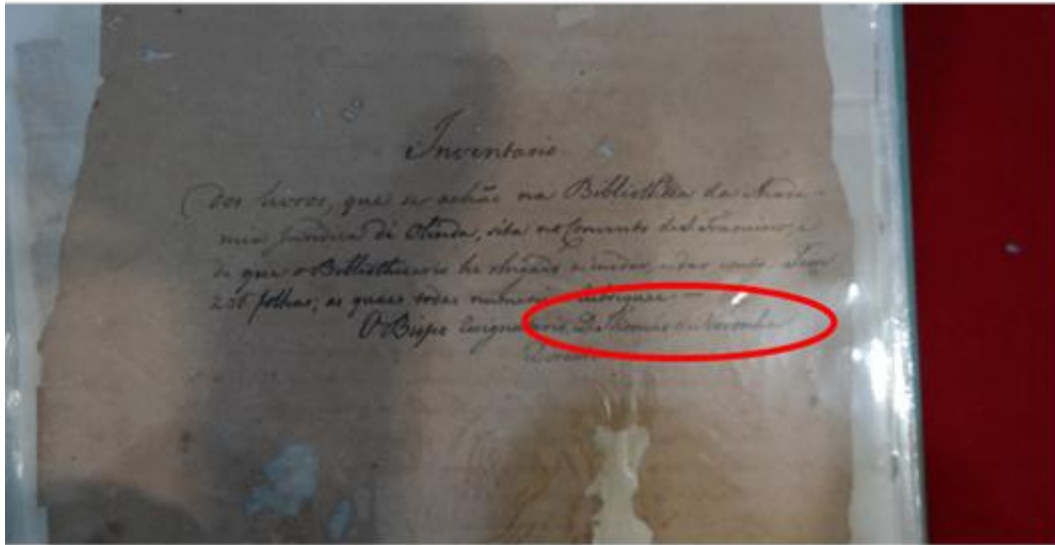 Inventario
Dos livros, que se achão na Bibliotheca da Acade-
mia Juridica de Olinda, sita no Convento de S. Francisco, e
de que o Bibliothecario he obrigado a dar conta. Tem
236 folhas, as quaes todas numerei e rubriquei. —
O Bispo D. Thomás de Noronha
Director